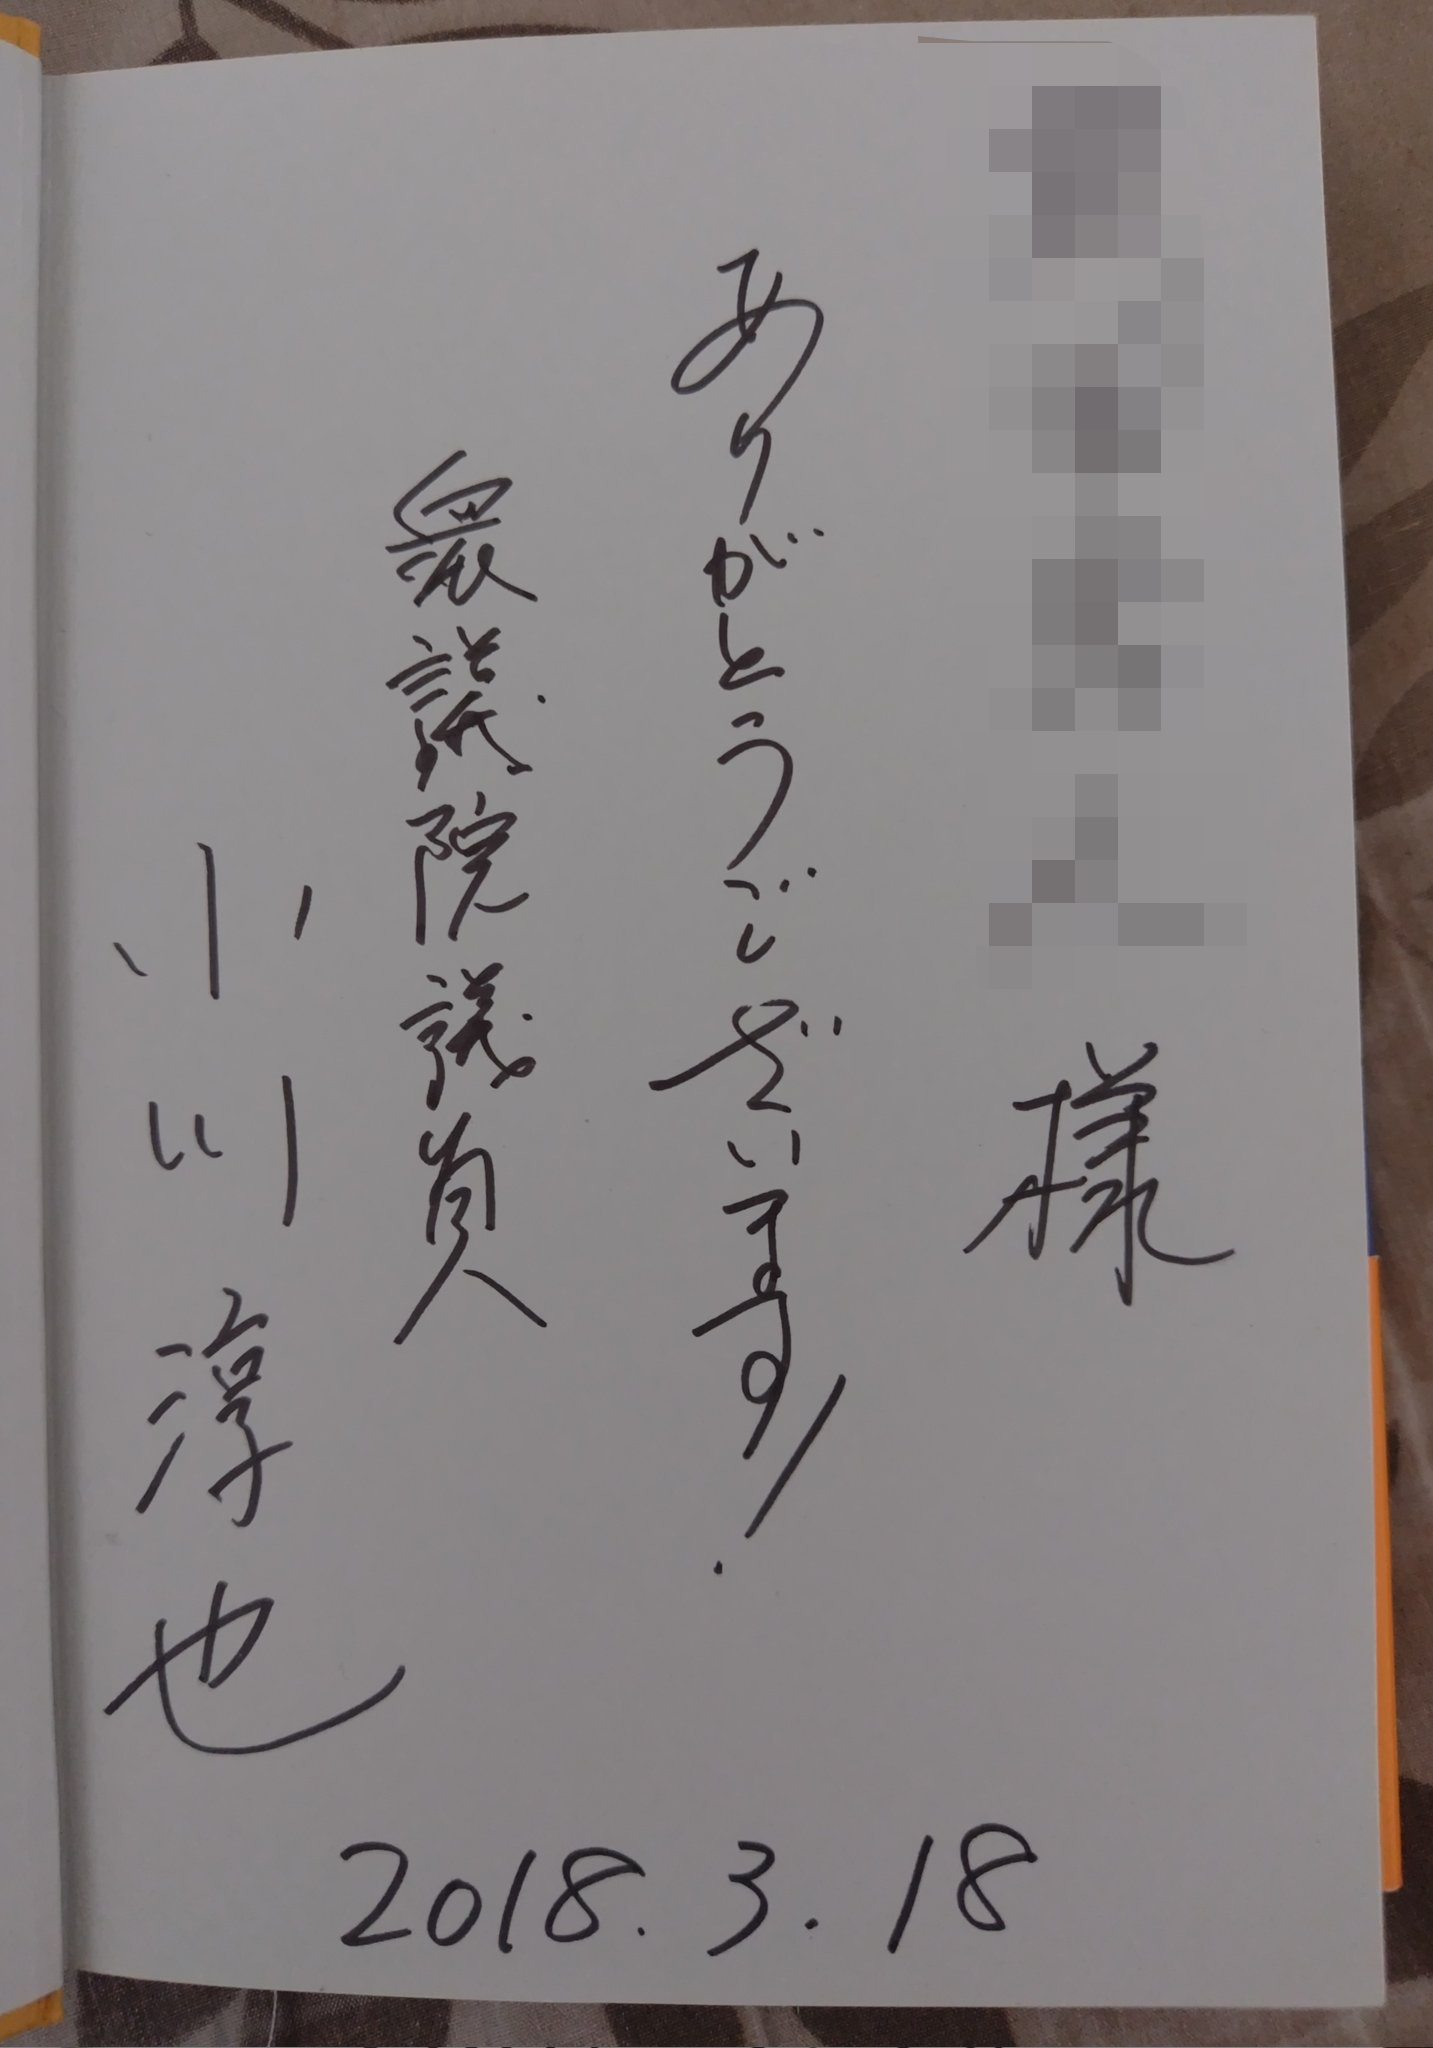 様
ありがとうございます!
衆議院議員
小川淳也
2018.3.18